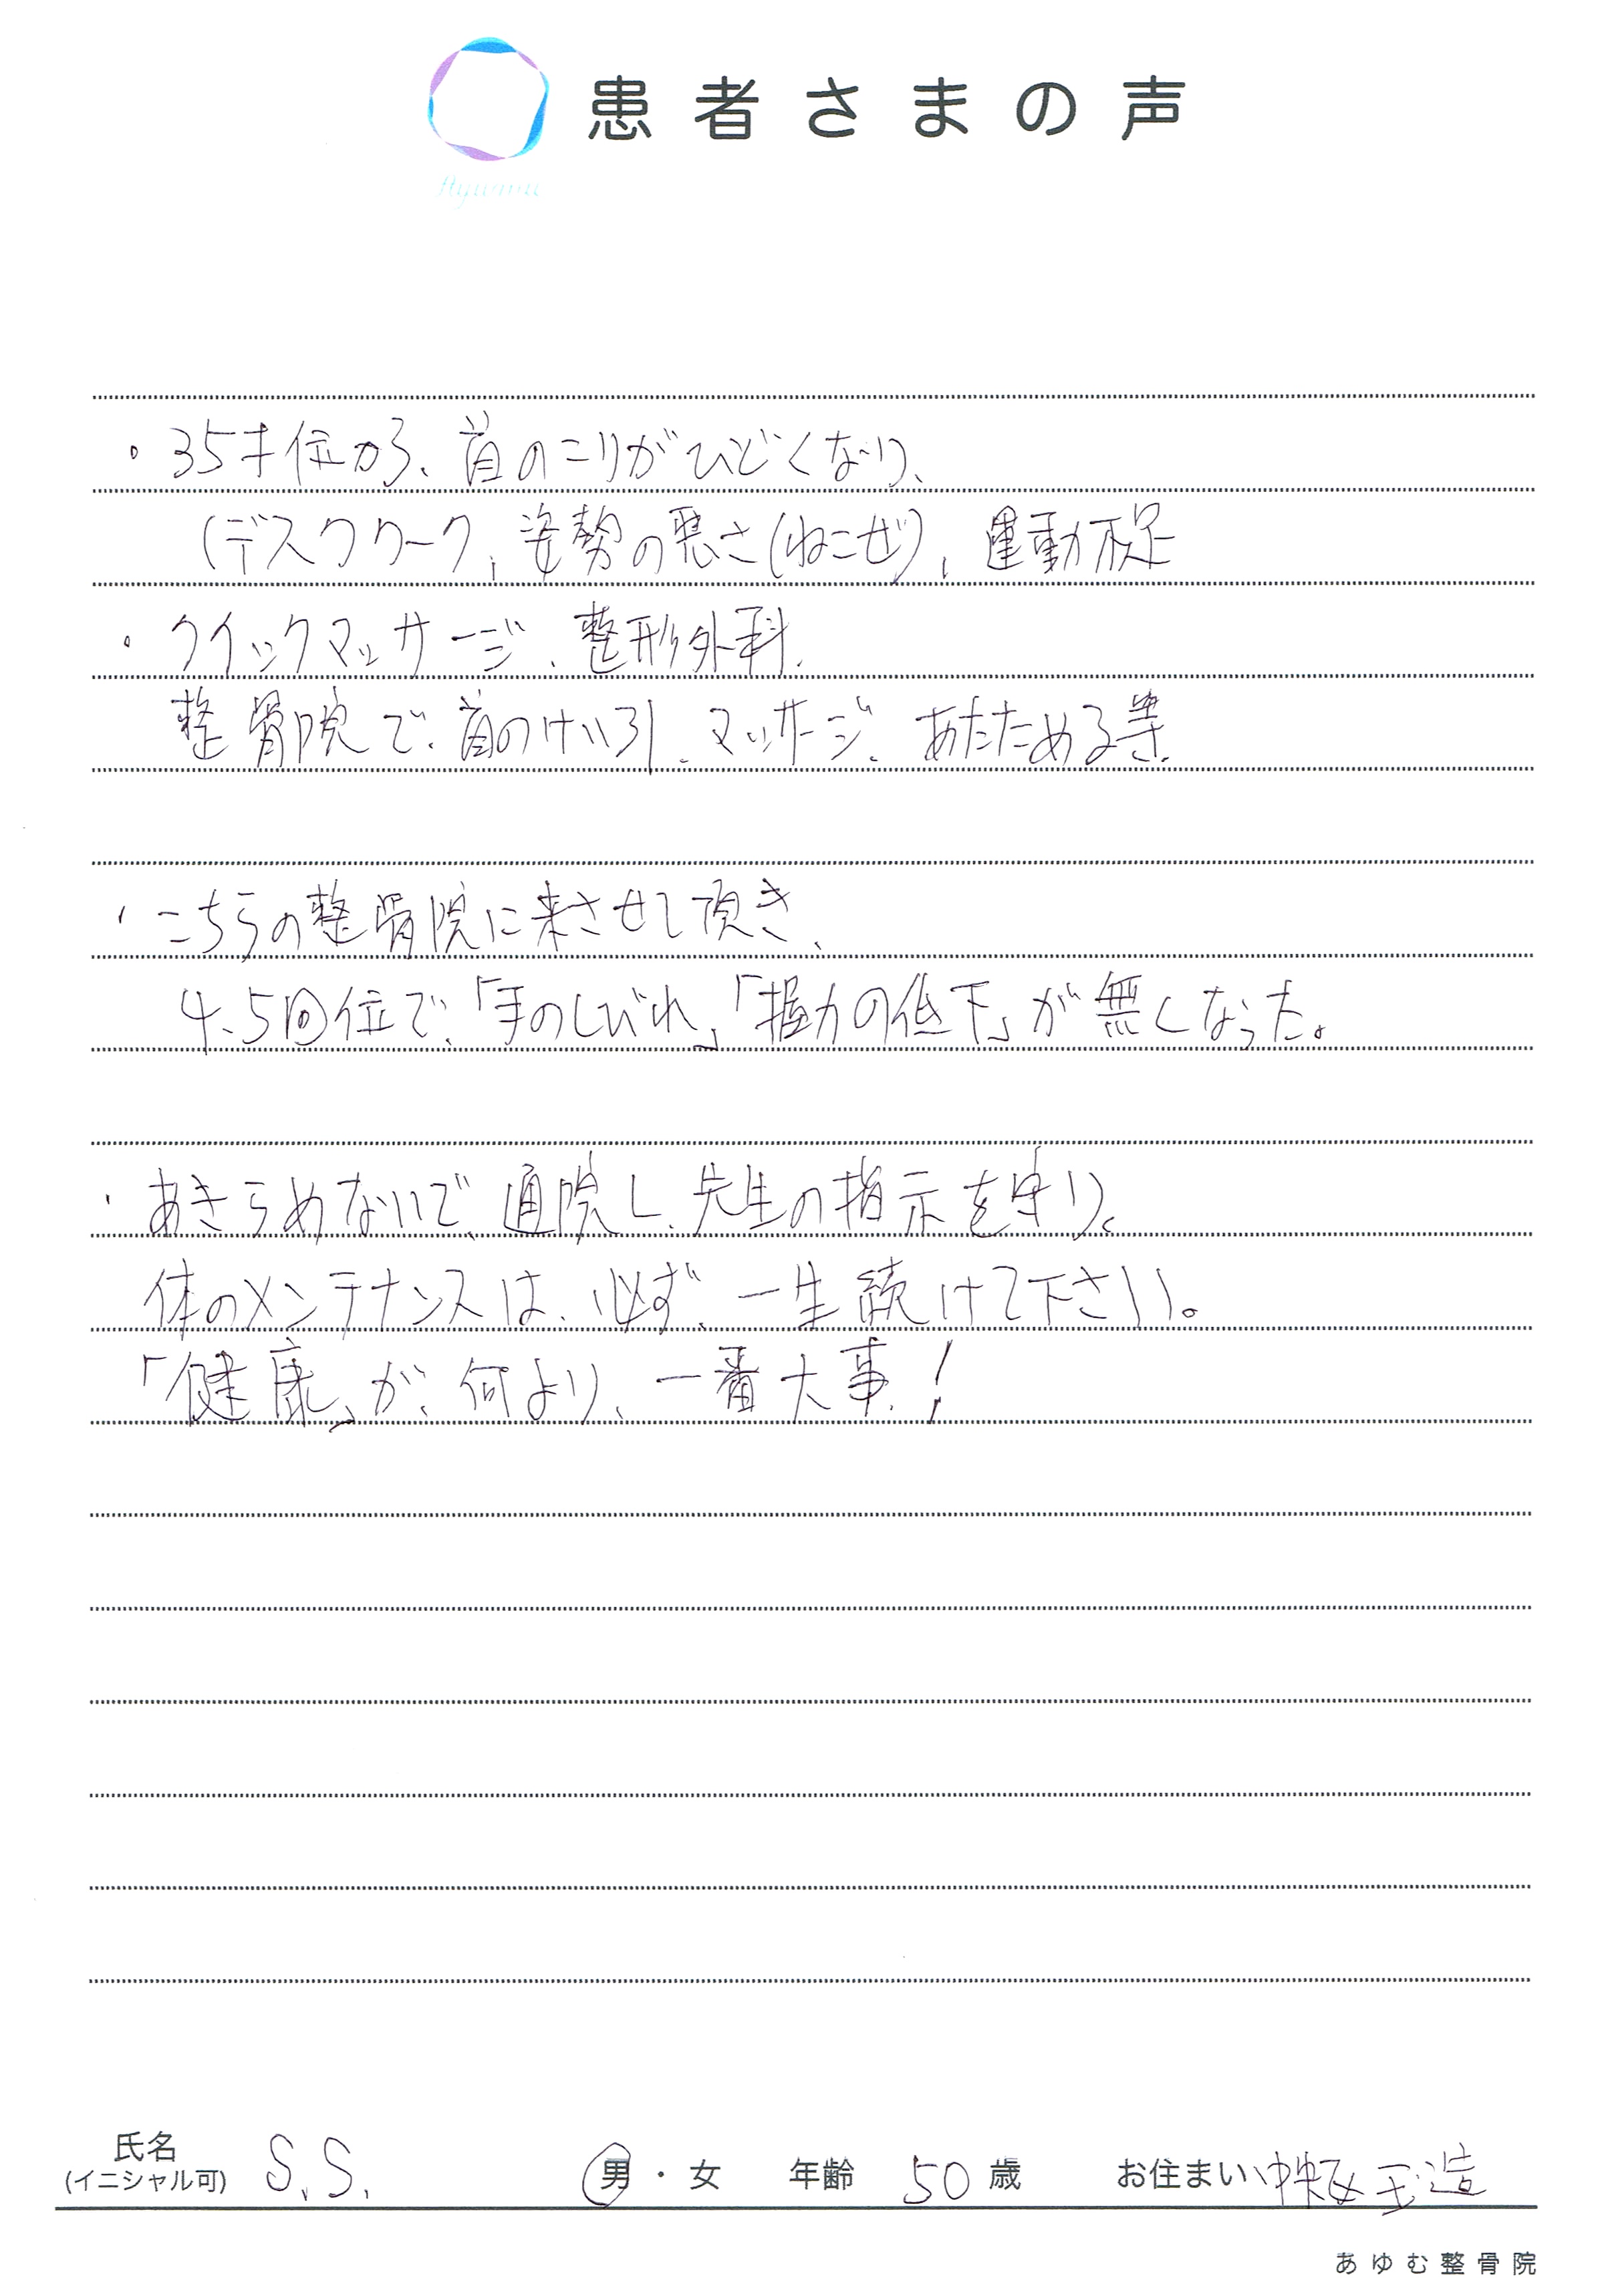 患者さまの声
Ayumu
・35才位から、首のこりがひどくなり、
(デスクワーク、姿勢の悪さ(ねこぜ)、運動不足
・クイックマッサージ、整形外科、
整骨院で、首のけい引、マッサージ、あたためる等、
・こちらの整骨院に来させて頂き、
4、5回位で、「手のしびれ」「握力の低下」が無くなった。
・あきらめないで、通院し、先生の指示を守り、
体のメンテナンスは、必ず、一生続けて下さい。
「健康」が、何より、一番大事!
氏名 S.S. 男・女 年齢 50 歳 お住まい 中央区玉造
(イニシャル可)
あゆむ整骨院